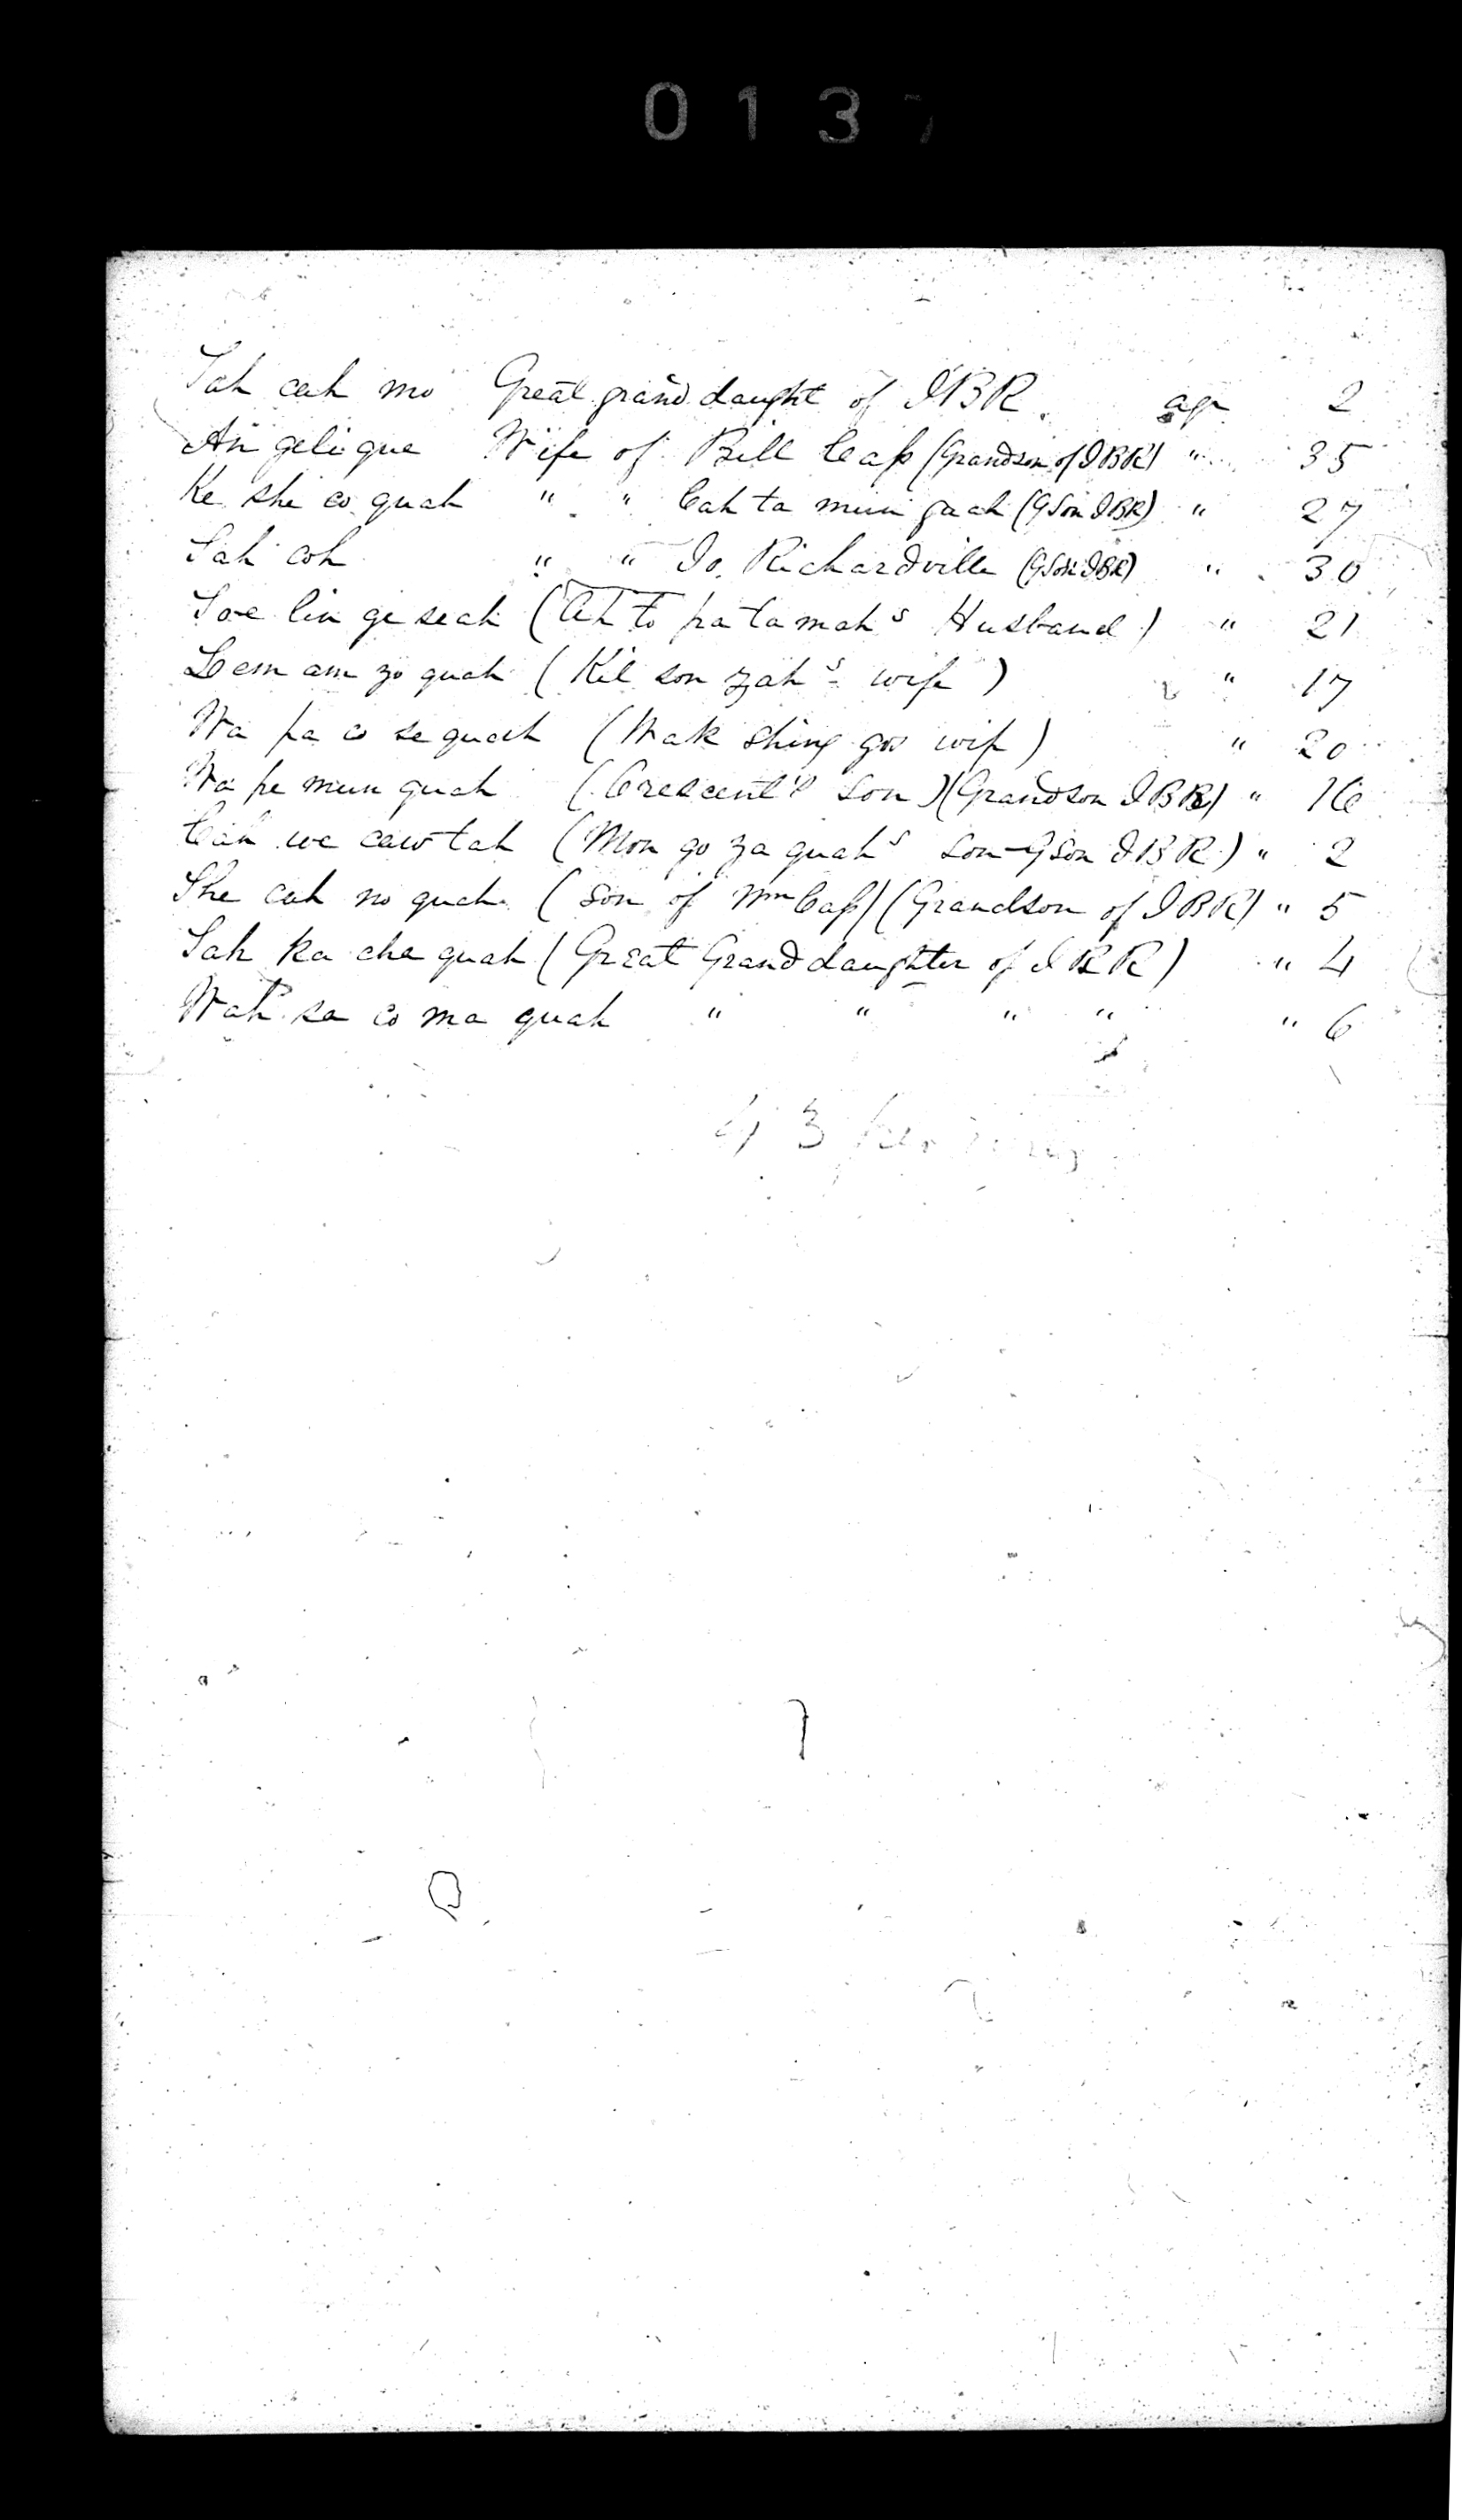 013
Tah cah mo Great grand daught of JBR. age 2
Angelique Wife of Bill Cass (Grandson of JBR) " 35
Ke she co quah " " Cah ta mun guah (GSon JBR) " 27
Sah coh " " Jo. Richardville (GSon JBR) " 30
Soe lin ge seah (Ah to pa ta mahs Husband) " 21
Lem am zo quah (Kil son zahs wife) " 17
Wa pa co se quah (Wak shing gos wife) " 20
Wa pe mun quah (Crescent's Son) (Grandson JBR) " 16
Cah we caw tah (Mon go za quahs Son GSon JBR) " 2
She cah no quah (Son of Wm Cass) (Grandson of JBR) " 5
Sah ka cha quah (Great Grand daughter of JBR) " 4
Wah sa co ma quah " " " " " 6
43